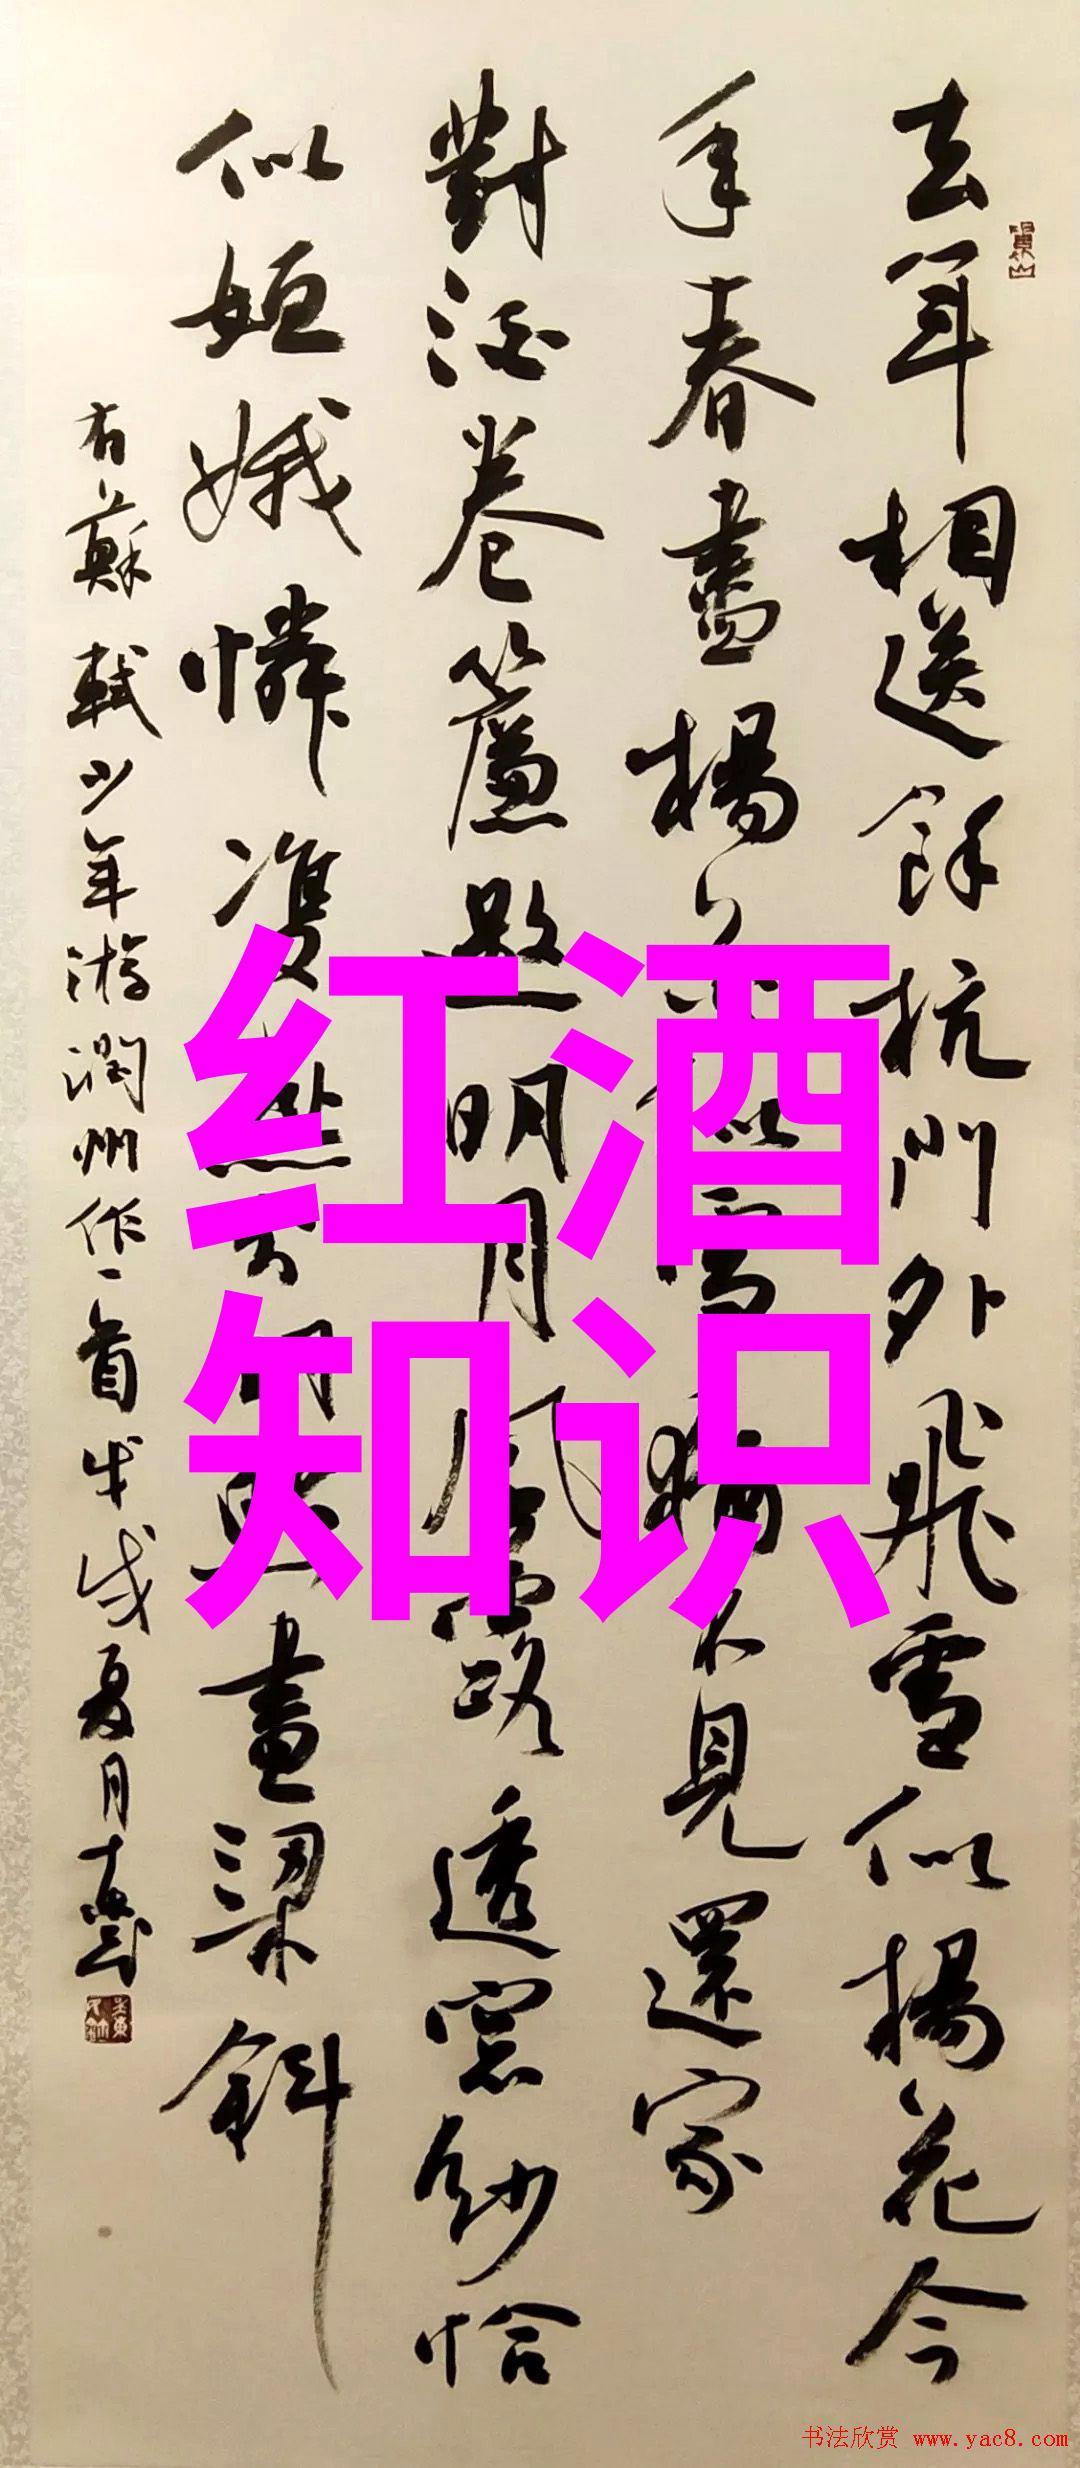 去年相送餘杭門外飛雪似楊花今
年春盡楊花似雪猶不見還家
對酒卷簾邀明月風露透窓紗恰
似姮娥憐雙燕分明照畫梁斜
右蘇軾少年游潤州作一首戊戌夏月
红酒
知识
书法欣赏 www.yac8.com